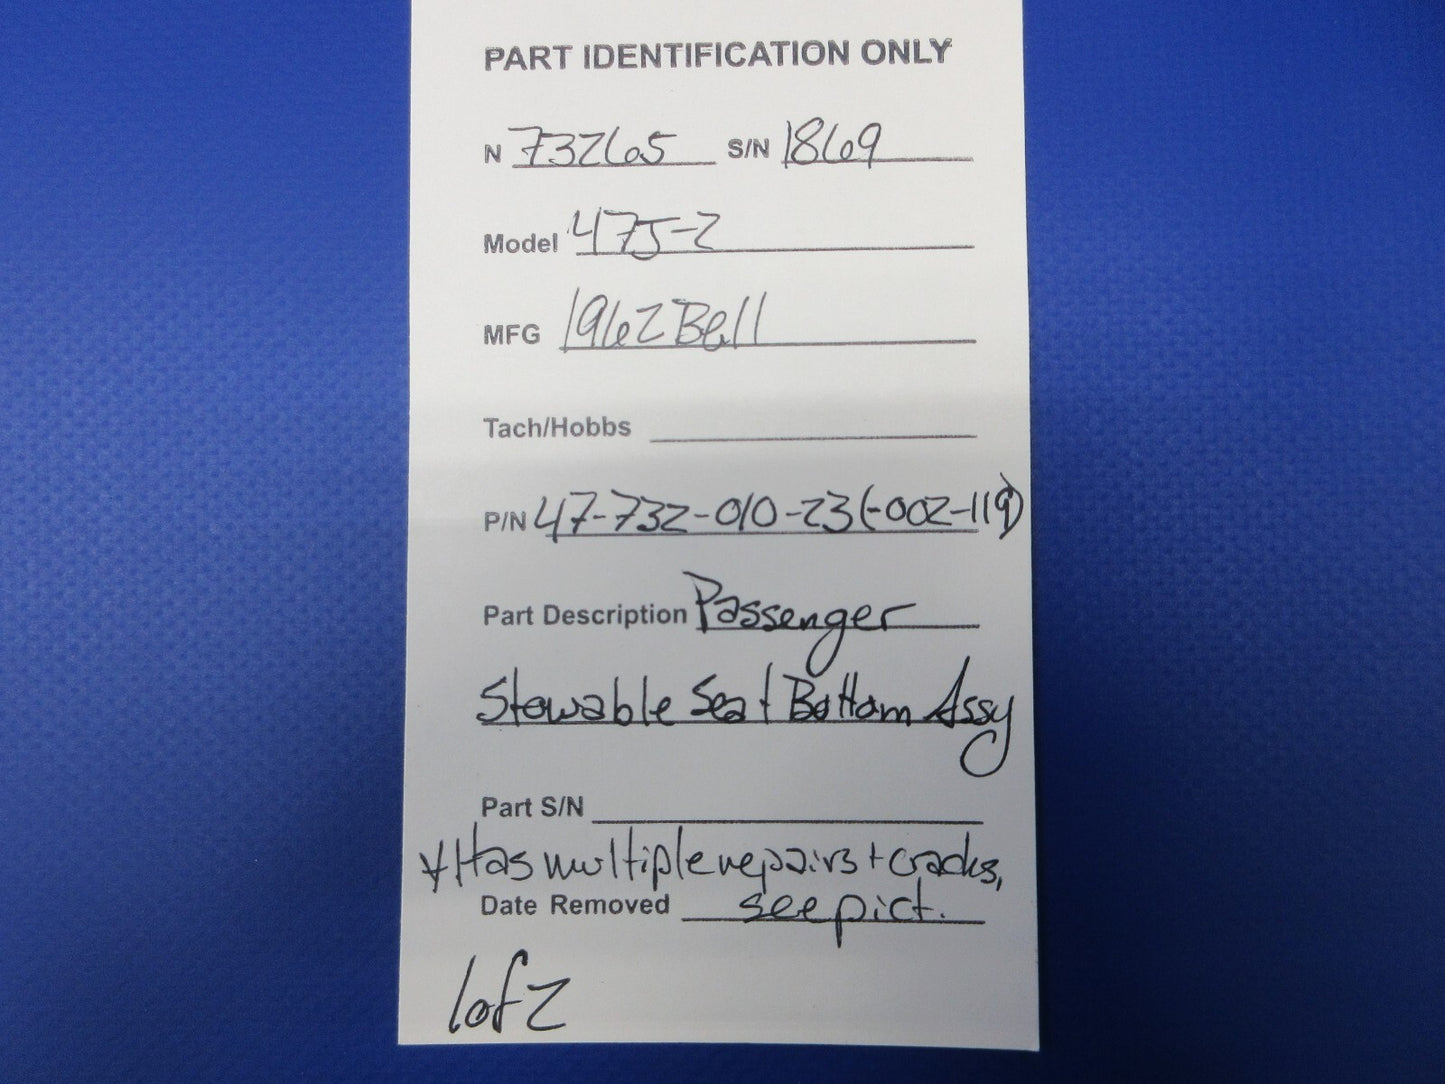 PART IDENTIFICATION ONLY
N 73265 S/N 1869
Model 47J-2
MFG 1962 Bell
Tach/Hobbs
P/N 47-732-010-23 (-002-119)
Part Description Passenger
Stowable Seat Bottom Assy
Part S/N
* Has multiple repairs + cracks,
Date Removed see pict.
1 of 2